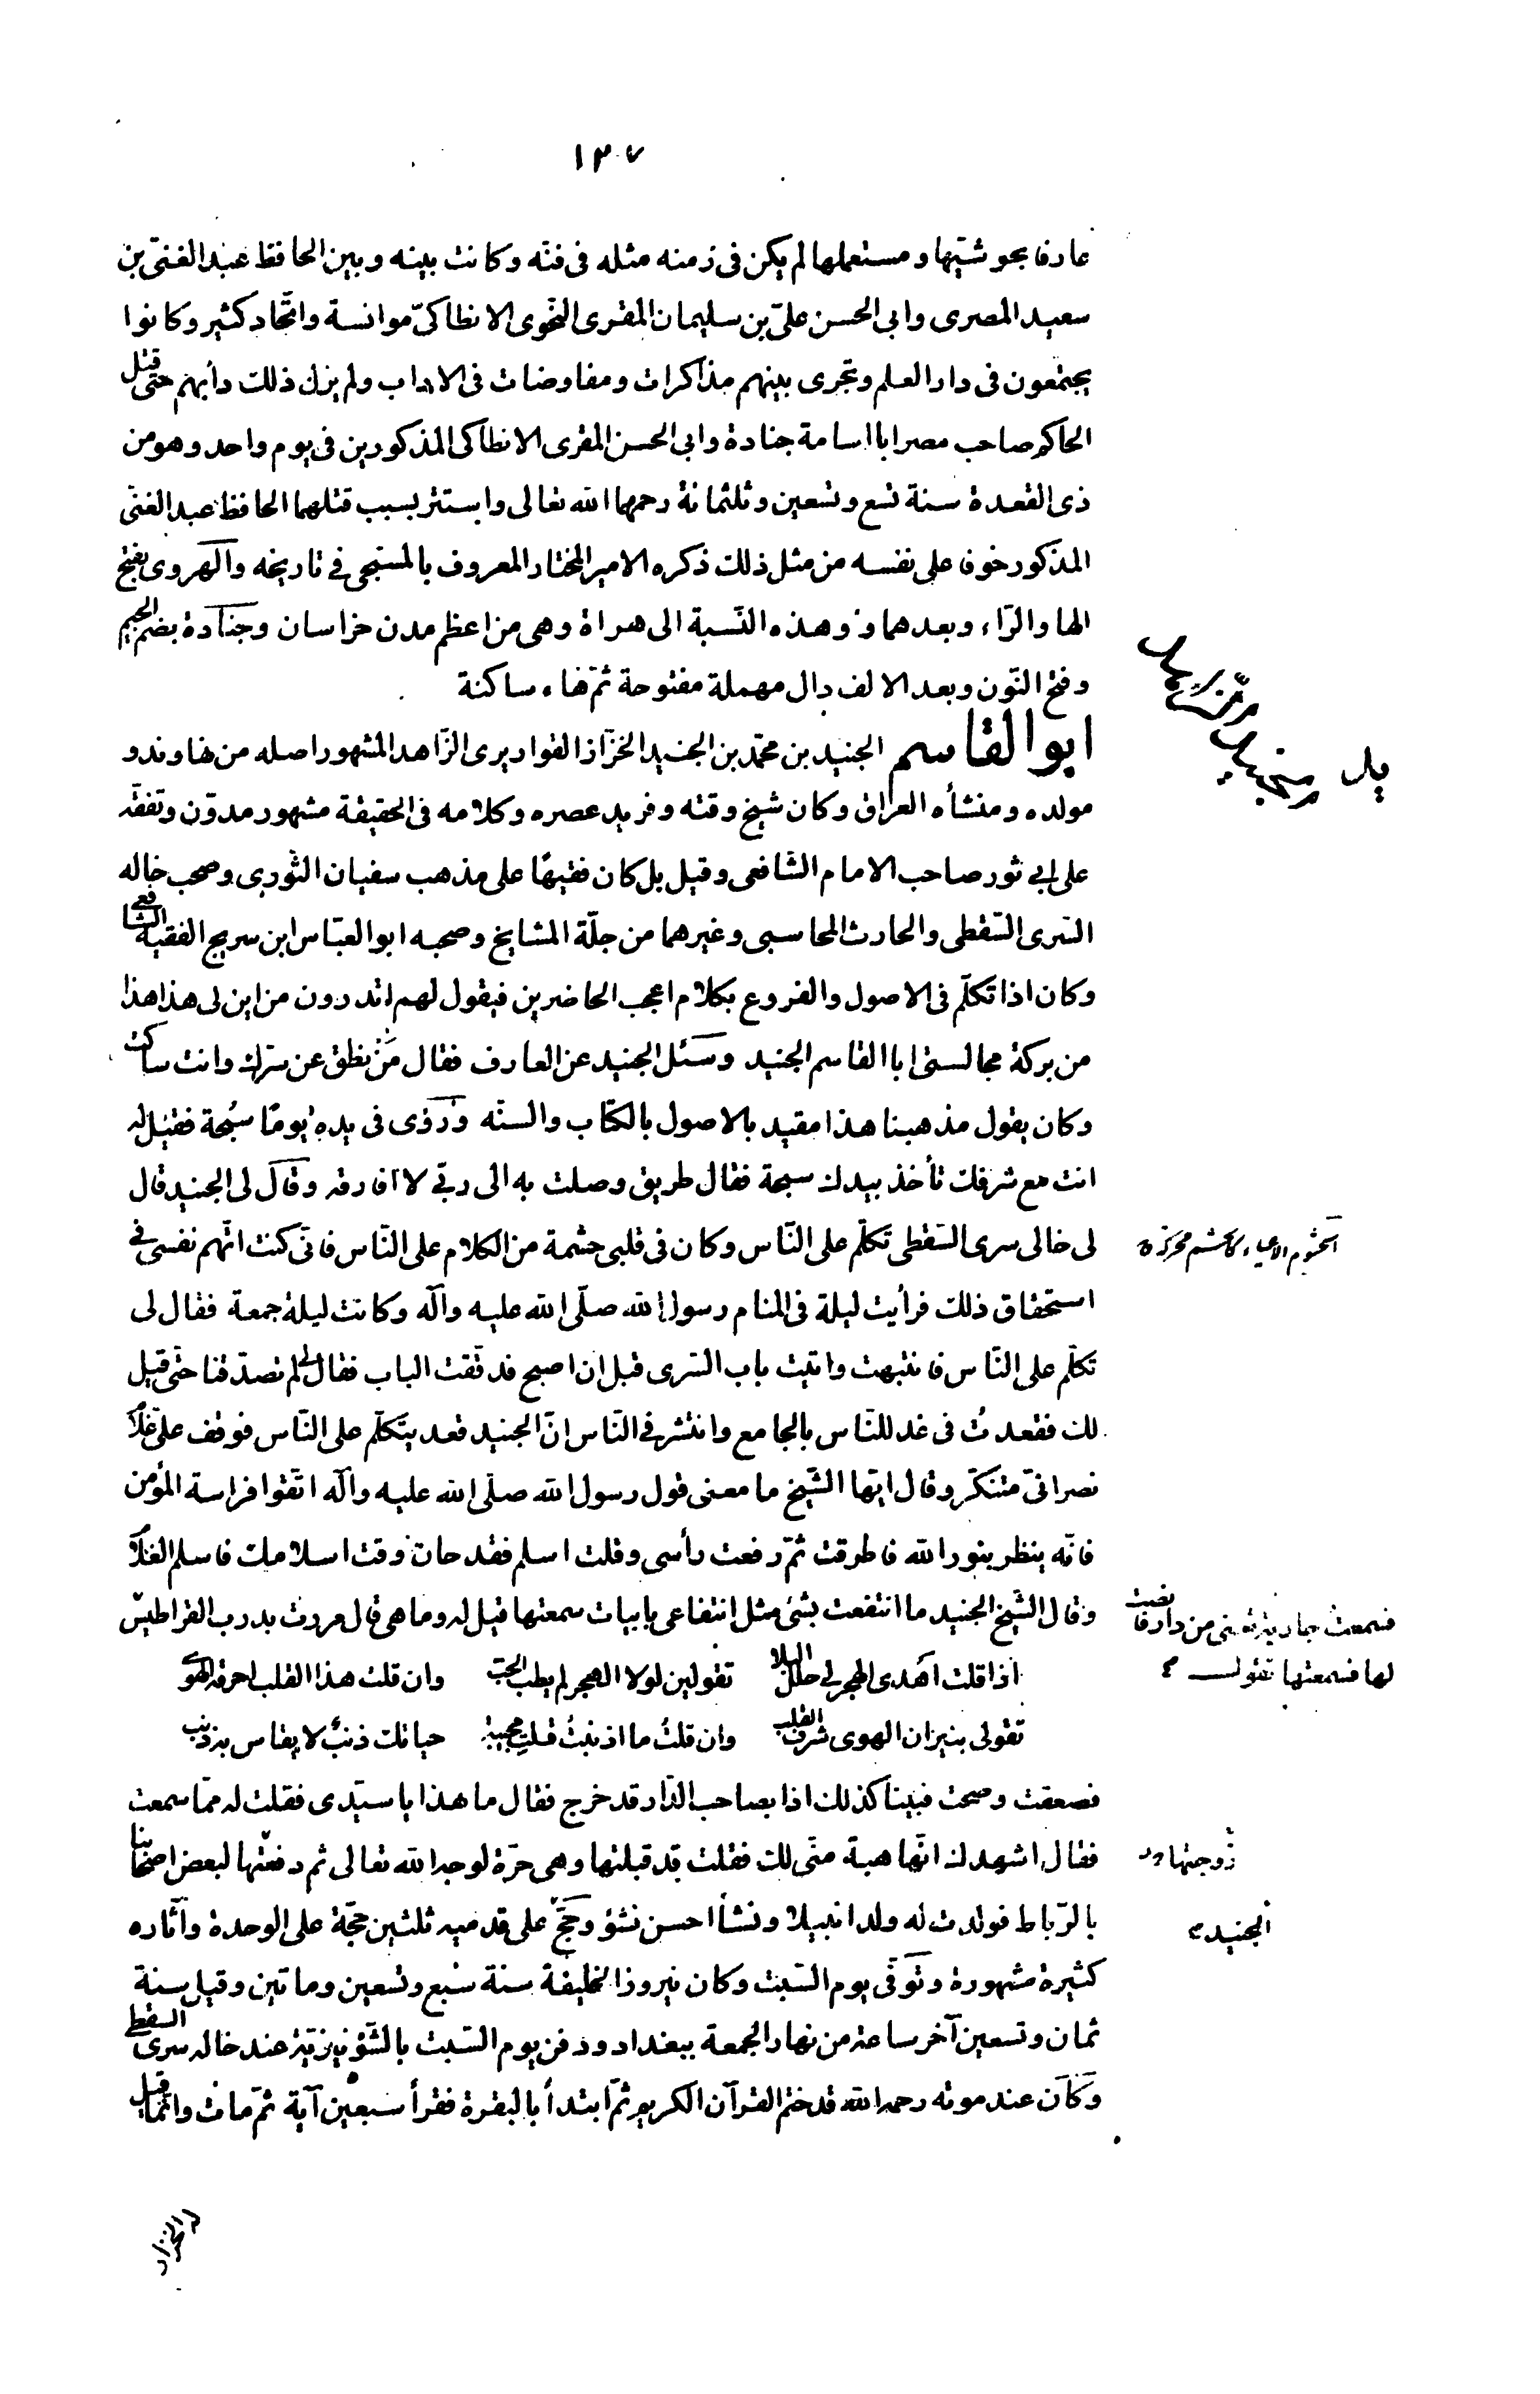 ١٣٧
عارفا بحوشيّها ومستعملها لم يكن فى زمنه مثله فى فنّه وكانت بينه وبين الحافظ عبد الغنىّ بن
سعيد المصرى وابى الحسن علىّ بن سليمان المقرى النّحوى الانطاكىّ موانسة واتّحاد كثير وكانوا
يجتمعون فى دار العلم وتجرى بينهم مذاكرات ومفاوضات فى الاداب ولم يزل ذلك دأبهم حتّى قتل
الحاكم صاحب مصر ابا اسامة جنادة وابى الحسن المقرى الانطاكى المذكورين فى يوم واحد وهو من
ذى القعدة سنة تسع وتسعين وثلثمائة رحمهما الله تعالى واستتر بسبب قتلهما الحافظ عبد الغنى
المذكور خوفا على نفسه من مثل ذلك ذكره الامير المختار المعروف بالمسبّحى فى تاريخه والهروى بفتح
الها والرّاء وبعدهما و وهذه النّسبة الى هراة وهى من اعظم مدن خراسان وجنادة بضم الجيم
وفتح النّون وبعد الالف دال مهملة مفتوحة ثمّ هاء ساكنة
ابو القاسم الجنيد بن محمّد بن الجنيد الخزّاز القواريرى الزّاهد المشهور اصله من نهاوند و
مولده ومنشأه العراق وكان شيخ وقته وفريد عصره وكلامه فى الحقيقة مشهور مدوّن وتفقّه
على ابى ثور صاحب الامام الشّافعى وقيل بل كان فقيهًا على مذهب سفيان الثّورى وصحب خاله
السّرى السّقطى والحارث المحاسبى وغيرهما من جلّة المشايخ وصحبه ابو العبّاس ابن سريج الفقيه الشافعى
وكان اذا تكلّم فى الاصول والفروع بكلام اعجب الحاضرين فيقول لهم اتدرون من اين لى هذا هذا
من بركة مجالستى ابا القاسم الجنيد وسئل الجنيد عن العارف فقال مَن نطق عن سرّك وانت ساكت
وكان يقول مذهبنا هذا مقيد بالاصول بالكتاب والسنّه ورؤى فى يده يومًا سُبحة فقيل له
انت مع شرفك تأخذ بيدك سبحة فقال طريق وصلت به الى ربّى لا افارقه وقال لى الجنيد قال
لى خالى سرى السّقطى تكلّم على النّاس وكان فى قلبى حشمة من الكلام على النّاس فانّى كنت اتّهم نفسى فى
استحقاق ذلك فرأيت ليلة فى المنام رسول الله صلّى الله عليه وآله وكانت ليلة جمعة فقال لى
تكلّم على النّاس فانتبهت واتيت باب السّرى قبل ان اصبح فدققت الباب فقال لى لم تصدّقنا حتّى قيل
لك فقعدتُ فى غد للنّاس بالجامع وانتشر فى النّاس انّ الجنيد قعد يتكلّم على النّاس فوقف علىّ غلام
نصرانىّ متنكّر وقال ايّها الشّيخ ما معنى قول رسول الله صلّى الله عليه وآله اتّقوا فراسة المؤمن
فانّه ينظر بنور الله فاطرقت ثمّ رفعت رأسى وقلت اسلم فقد حان وقت اسلامك فاسلم الغلام
وقال الشّيخ الجنيد ما انتفعت بشئ مثل انتفاعى بابيات سمعتها قيل له وما هى قال مررت بدرب القراطيس
اذا قلت اهدى الهجر لى حلل البلا تقولين لولا الهجر لم يطب الحبّ وان قلت هذا القلب احرقه الهوى
تقولى بنيران الهوى شرف القلب وان قلتُ ما اذنبتُ قلتِ مجيبة حياتك ذنبٌ لا يقاس به ذنب
فصعقت وصحت فبينا كذلك اذا بصاحب الدّار قد خرج فقال ما هذا يا سيّدى فقلت له ممّا سمعت
فقال اشهدك انّها هبة منّى لك فقلت قد قبلتها وهى حرّة لوجه الله تعالى ثم دفعتها لبعض اصحابنا
بالرّباط فولدت له ولدا نبيلا ونشأ احسن نشؤ وحجّ على قدميه ثلثين حجّة على الوحدة وآثاره
كثيرة مشهورة وتوفّى يوم السّبت وكان نيروز الخليفة سنة سبع وتسعين ومأتين وقيل سنة
ثمان وتسعين آخر ساعة من نهار الجمعة ببغداد ودفن يوم السّبت بالشّونيزيّة عند خاله سرى السقطى
وكان عند موته رحمه الله قد ختم القرآن الكريم ثمّ ابتدأ بالبقرة فقرأ سبعين آية ثمّ مات وانّما قيل
فسمعت جارية تغنى من دار
لها فسمعتها تقول
زوجتها
الجنيد
له الخزاز